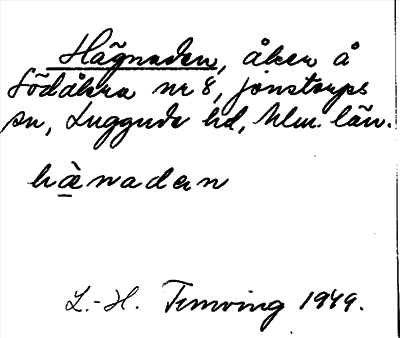 Hägnaden, åker å
Södåkra nr 8, Jonstorps
sn, Luggude hd, Mlm. län.
hànadan
L.-H. Temving 1949.